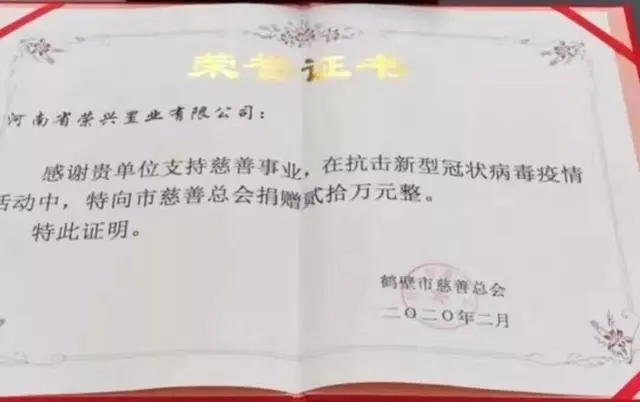 荣誉证书
河南省荣兴置业有限公司：
感谢贵单位支持慈善事业，在抗击新型冠状病毒疫情
活动中，特向市慈善总会捐赠贰拾万元整。
特此证明。
鹤壁市慈善总会
二〇二〇年二月